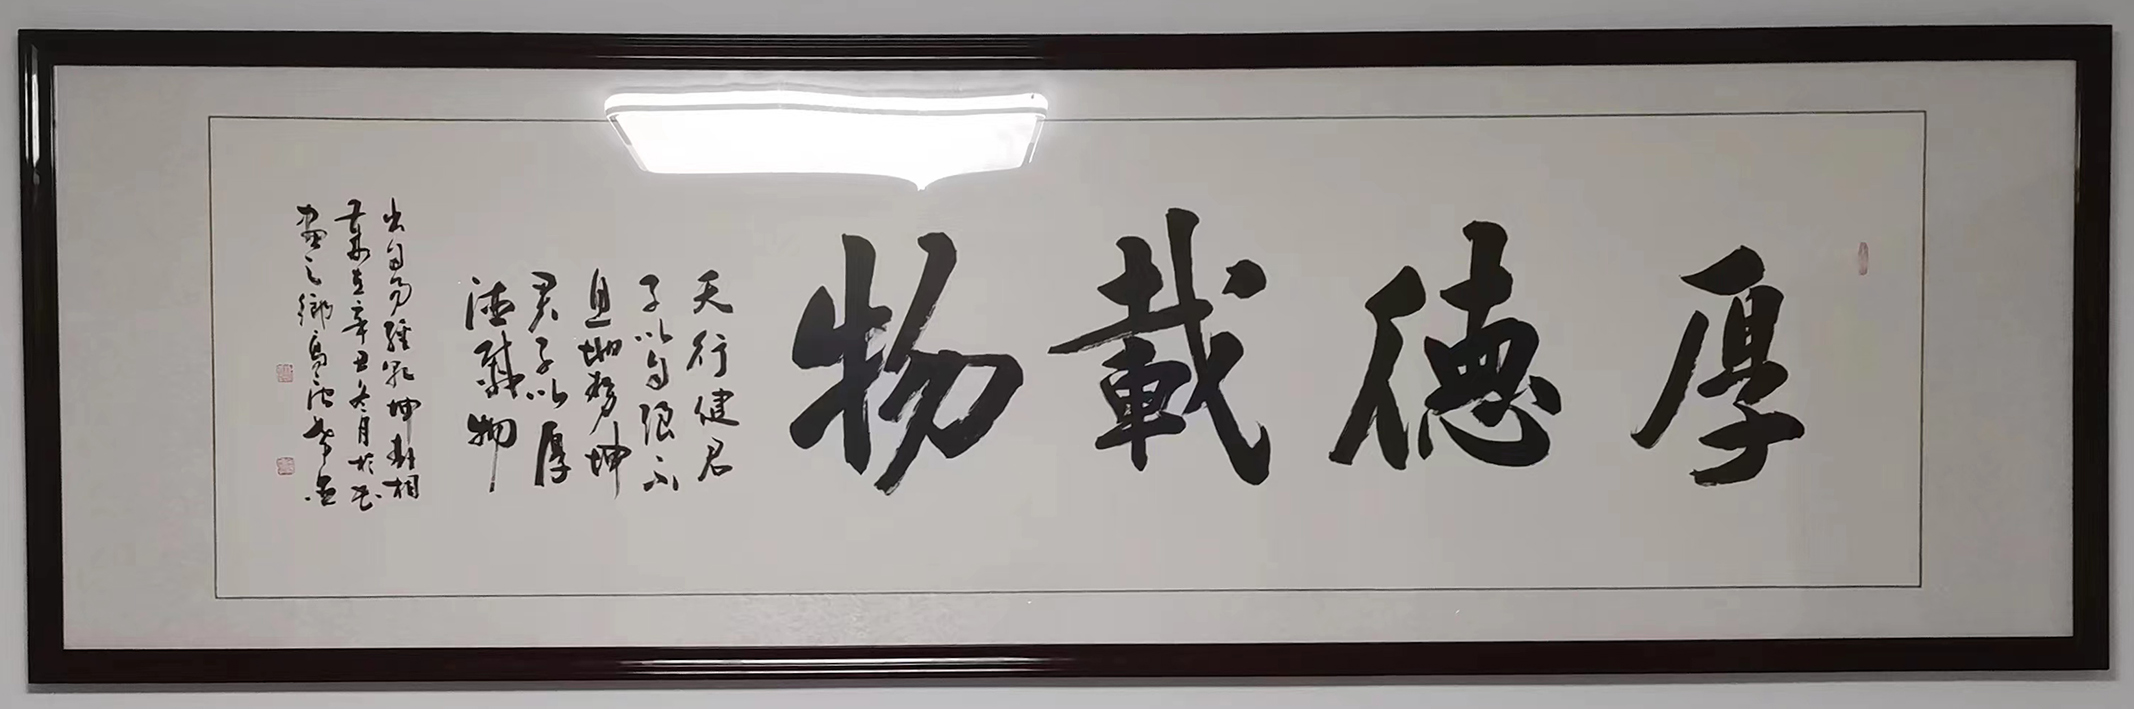 厚德載物
天行健君
子以自强不
息地势坤
君子以厚
德载物
出自易經乾坤卦相
也
辛丑冬月於
書之鄉